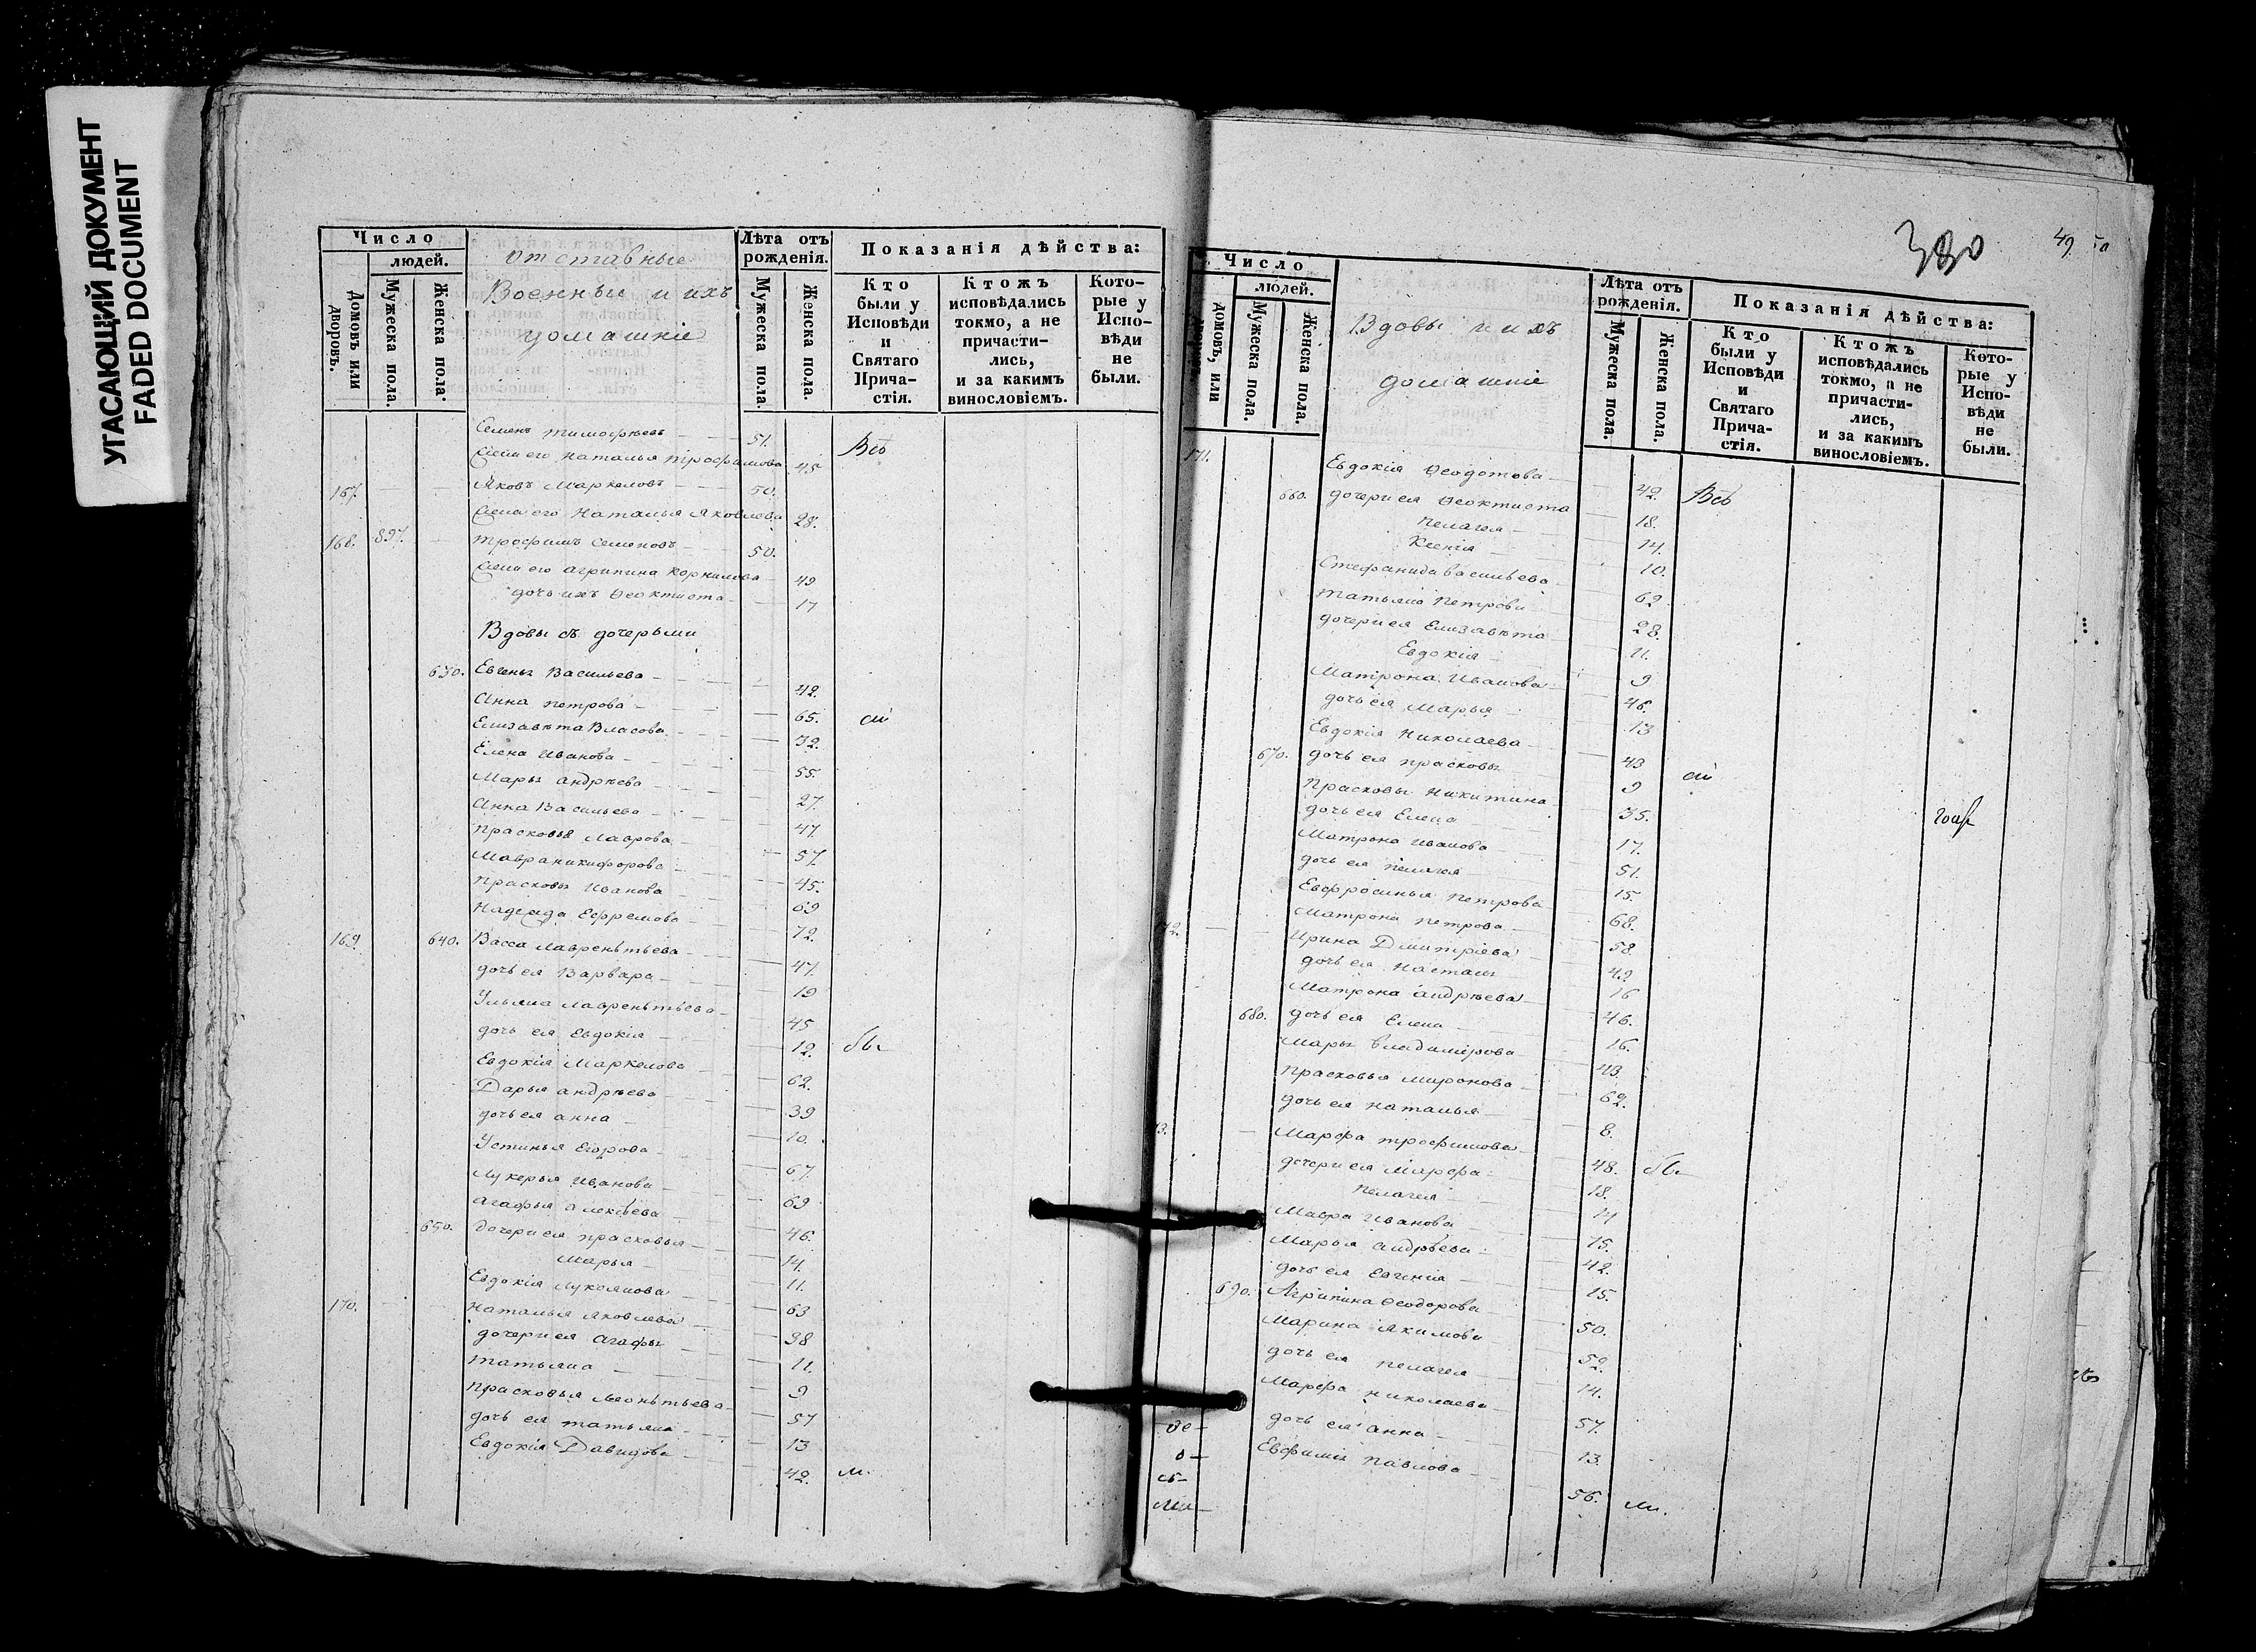 УГАСАЮЩИЙ ДОКУМЕНТ
FADED DOCUMENT
Число
людей.
Домовъ или дворовъ.
Мужеска пола.
Женска пола.
отставные
Военныи и ихъ
домашніе
Лѣта отъ рожденія.
Мужеска пола.
Женска пола.
Показанія дѣйства:
Кто были у Исповѣди и Святаго Прича-стія.
Ктожъ исповѣдались токмо, а не причасти-лись, и за какимъ винословіемъ.
Кото-рые у Испо-вѣди не были.
Семенъ Тимофѣевъ 51. Всѣ
Жена его Наталья Трофимова 45
167. Яковъ Маркеловъ 50.
Жена его Наталья Яковлева 28.
168. 897. Трофимъ Семеновъ 50.
Жена его Агрипина Корнилова 49
дочь ихъ Ѳеоктиста 17
Вдовы съ дочерьми
630. Евгенья Васильева 42.
Анна Петрова 65.
Елизавѣта Власова 32.
Елена Иванова 55.
Марья Андрѣева 27.
Анна Васильева 47.
Прасковья Лаврова 57.
Мавра Никифорова 45.
Прасковья Иванова 69
Надежда Ефремова 72.
169. 640. Васса Лаврентьева 47.
дочь ея Варвара 19
Ульяна Лаврентьева 45
дочь ея Евдокія 12.
Евдокія Маркелова 62.
Дарья Андрѣева 39
дочь ея Анна 10.
Устинья Егорова 67.
Лукерья Иванова 69
Агафья Алексѣева 46.
650. дочери ея Прасковья 14.
Марья 11.
Евдокія Лукоянова 63
170. Наталья Яковлева 38
дочери ея Агафья 11.
Татьяна 9
Прасковья Леонтьева 57
дочь ея Татьяна 13
Евдокія Давидова 42.
380
49
Число
людей.
домовъ, или
Мужеска пола.
Женска пола.
Вдовы и ихъ
домашніе
Лѣта отъ рожденія.
Мужеска пола.
Женска пола.
Показанія дѣйства:
Кто были у Исповѣди и Святаго Прича-стія.
Ктожъ исповѣдались токмо, а не причасти-лись, и за какимъ винословіемъ.
Кото-рые у Испо-вѣди не были.
171. Евдокія Ѳеодотова 42. Всѣ
660. дочери ея Ѳеоктиста 18.
Пелагея 14.
Ксенія 10.
Стефанида Васильева 62
Татьяна Петрова 28.
дочери ея Елизавѣта 11.
Евдокія 9
Матрона Иванова 46.
дочь ея Марья 13
Евдокія Николаева 43
670. дочь ея Прасковья 9
Прасковья Никитина 35.
дочь ея Елена 17.
Матрона Иванова 51.
дочь ея Пелагея 15.
Евфросинья Петрова 68.
Матрона Петрова 58.
Ирина Дмитріева 42
дочь ея Настасья 16
Матрона Андрѣева 46.
680. дочь ея Елена 16.
Марья Владимірова 43.
Прасковья Миронова 62.
дочь ея Наталья 8.
Марфа Трофимова 48.
дочери ея Марфа 18.
Пелагея 14
Мавра Иванова 75.
Марья Андрѣева 42.
дочь ея Евгенія 15.
690. Агрипина Ѳеодорова 50.
Марина Якимова 52.
дочь ея Пелагея 14.
Марфа Николаева 57.
дочь ея Анна 13.
Евфимія Павлова 56.